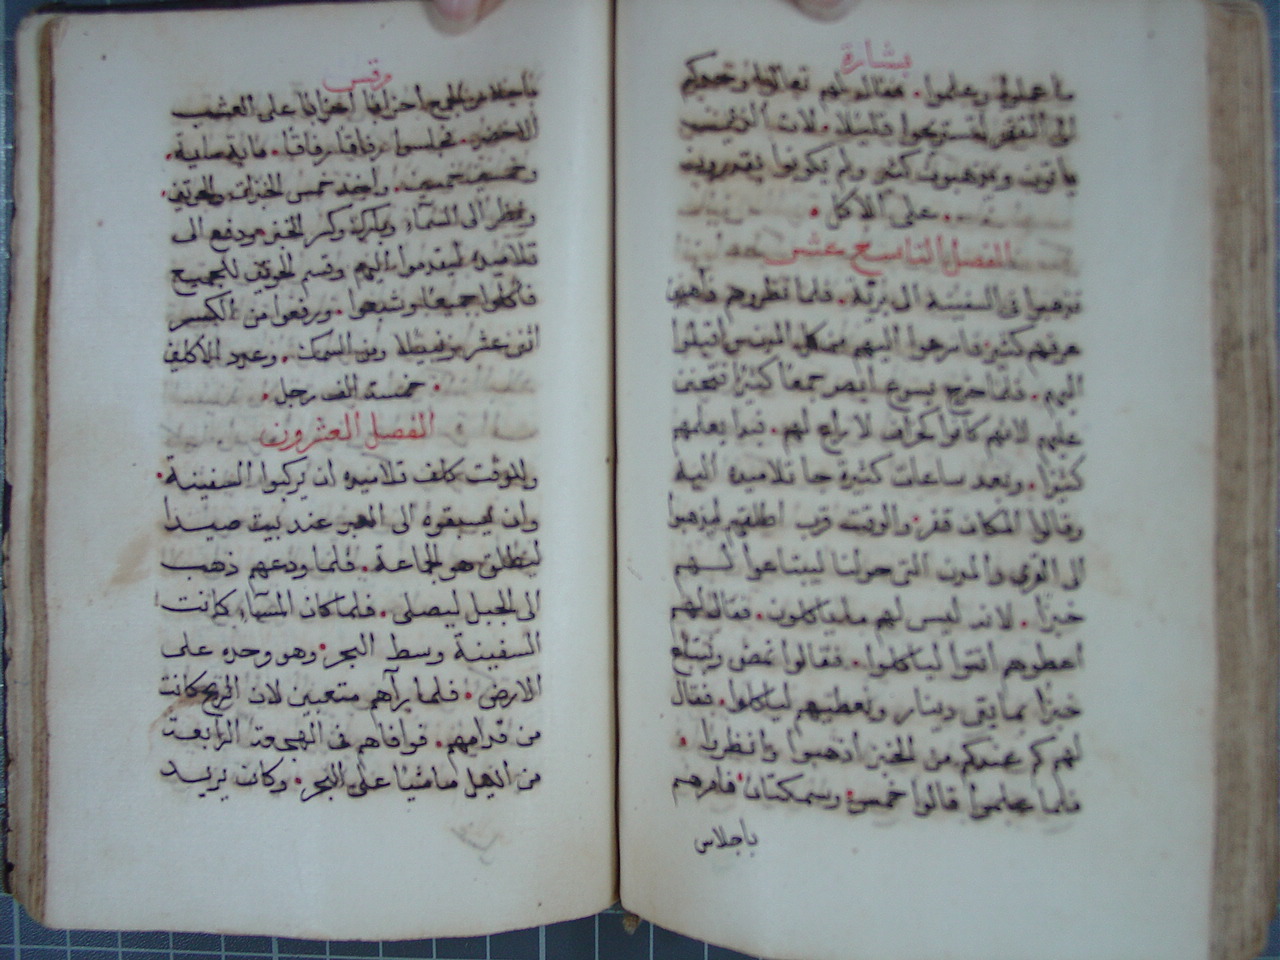 بشارة
ما عملوا وعلموا. فقال لهم تعالوا وحدكم
الى القفر لتستريحوا قليلا. لان الذين
ياتون ويذهبون كثير ولم يكونوا يقدرون
على الاكل.
الفصل التاسع عشر
فذهبوا في السفينة الى برية. فلما نظروهم ذاهبين
عرفهم كثير فاسرعوا اليهم من كل المدن اقبلوا
اليهم. فلما خرج يسوع ابصر جمعا كثيرا فتحنن
عليهم لانهم كانوا كخراف لا راع لهم. فبدا يعلمهم
كثيرا. وبعد ساعات كثيرة جا تلاميذه اليه
وقالوا المكان قفر والوقت قرب اطلقهم ليذهبوا
الى القرى والمدن التي حولنا ليبتاعوا لهم
خبزا. لانه ليس لهم ما ياكلون. فقال لهم
اعطوهم انتوا لياكلوا. فقالوا نمض ونبتاع
خبزا بمايتي دينار ونعطيهم لياكلوا. فقال
لهم كم عندكم من الخبز اذهبوا وانظروا.
فلما علموا قالوا خمس وسمكتان فامرهم
باجلاس
مرقس
باجلاس الجميع احزابا احزابا على العشب
الاخضر. فجلسوا رفاقا رفاقا. ماية ماية.
وخمسين خمسين. واخذ خمس الخبزات والحوتين.
ونظر الى السماء وبارك وكسر الخبز ودفع الى
تلاميذه ليقدموا اليهم وقسم الحوتين للجميع
فاكلوا جميعا وشبعوا. ورفعوا من الكسر
اثني عشر زنبيلا ومن السمك. وعدد الاكلين
خمسة الف رجل.
الفصل العشرون
وللوقت كلف تلاميذه ان يركبوا السفينة.
وان يسبقوه الى العبر عند بيت صيدا
ليطلق هو الجماعة. فلما ودعهم ذهب
الى الجبل ليصلى. فلما كان المساء كانت
السفينة وسط البحر وهو وحده على
الارض. فلما رآهم متعبين لان الريح كانت
من قدامهم. فوافاهم في الهجعة الرابعة
من الليل ماشيا على البحر. وكان يريد